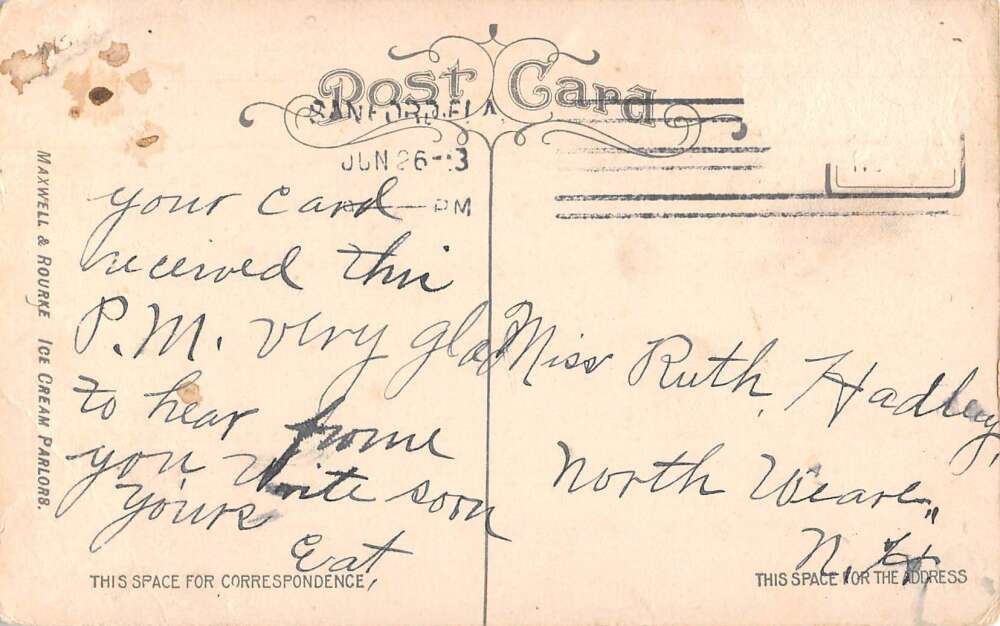 Post Card
SANFORD, FLA
JUN 26
PM
MAXWELL & ROURKE ICE CREAM PARLORS.
your card
received this
P.M. very glad
to hear frome
you write soon
yours
Eat
Miss Ruth Hadley,
North Weare,
N.H
THIS SPACE FOR CORRESPONDENCE,
THIS SPACE FOR THE ADDRESS